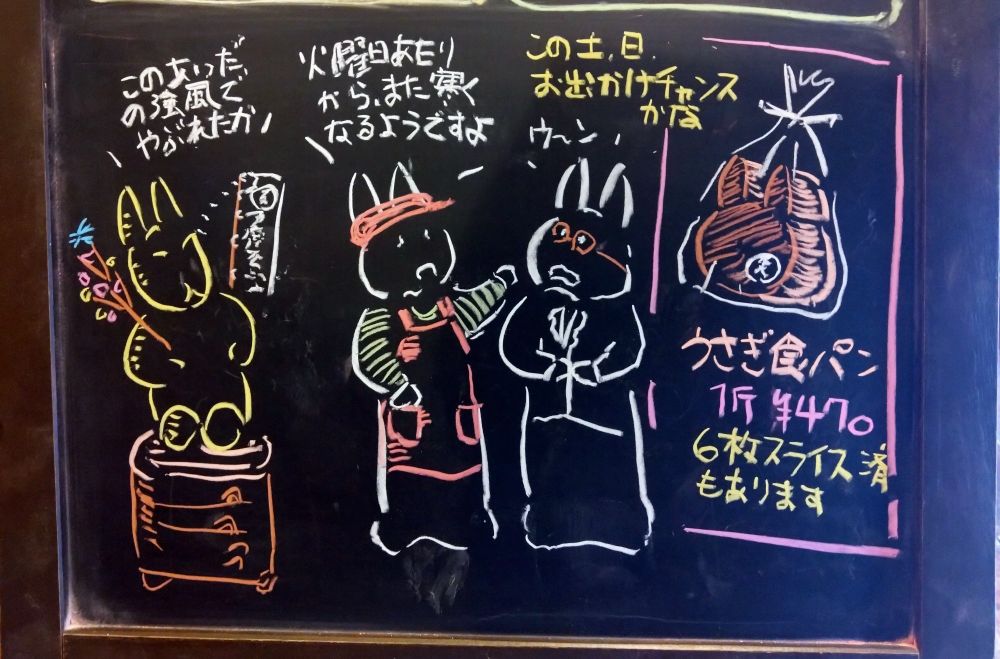 このあいだ
の強風で
やぶれたカ
火曜日あたり
から、また寒く
なるようですよ
この土、日、
お出かけチャンス
かな
ウ〜ン
うさぎ食パン
1斤 ¥470
6枚スライス済
もあります